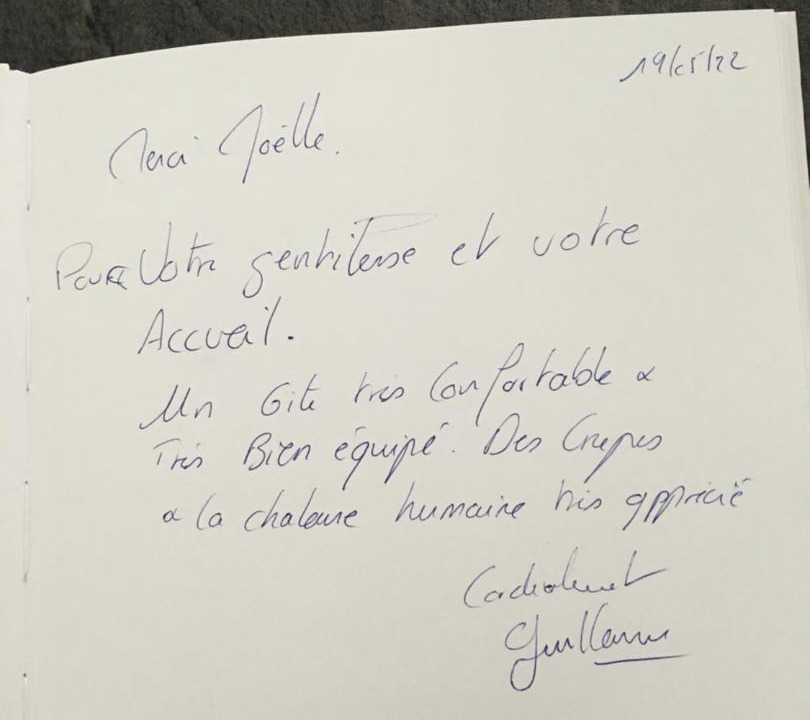 19/05/22
Merci Joëlle.
Pour Votre gentillesse et votre
Accueil.
Un Gite très Confortable &
Très Bien équipé. Des Crepes
& la chaleure humaine très apprécié
Cordialement
Guillaume